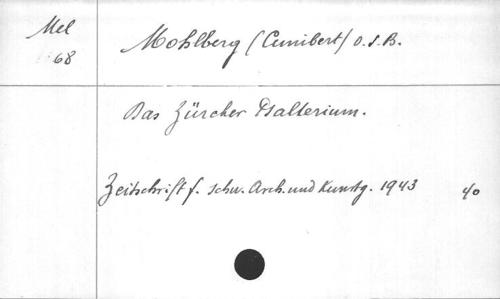 Mel
68
Mohlberg (Cunibert) O.S.B.
Das Zürcher Psalterium.
Zeitschrift f. schw. Arch. und Kunstg. 1943 40